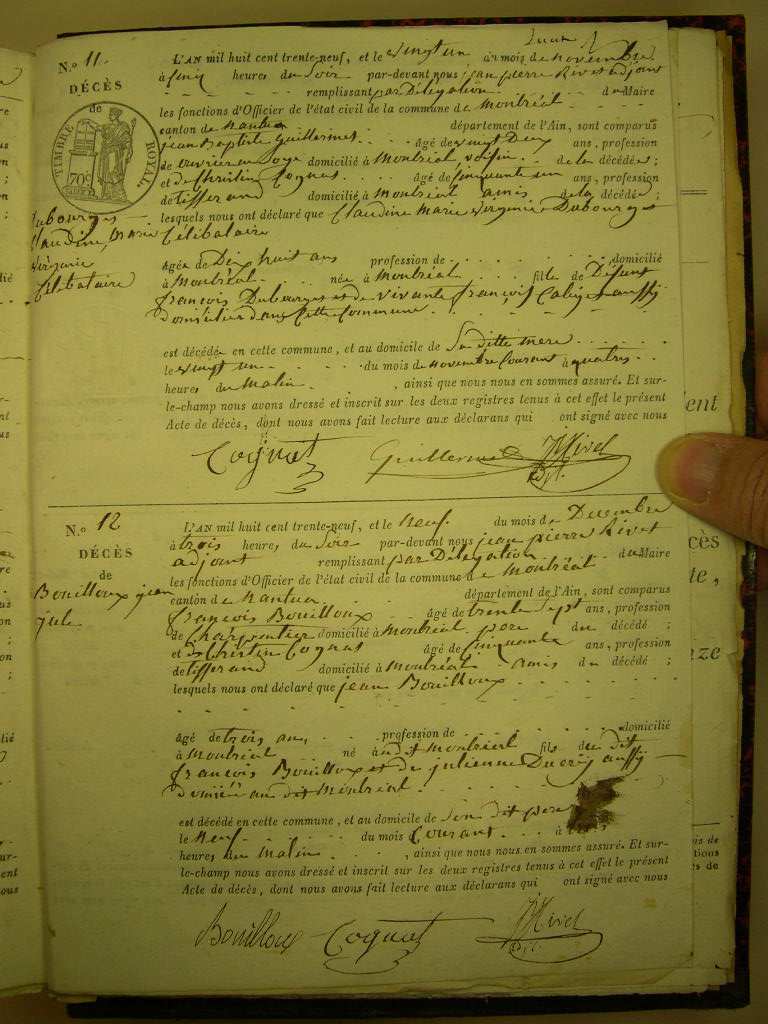 N.° 11.
DÉCÈS
de
TIMBRE ROYAL.
70c
Dubourget
Claudine, Marie
Virginie
Célibataire
L'AN mil huit cent trente-neuf, et le vingt un du mois de novembre
à cinq heures du Soir par-devant nous jean pierre Rivet adjoint
remplissant par Délégation du Maire
les fonctions d'Officier de l'état civil de la commune de Montréal
canton de nantua département de l'Ain, sont comparus
jean Baptiste Guillermet âgé de vingt Deux ans, profession
de ouvrier en Soye domicilié à Montréal, voisin de la décédée;
et de Christin Cognat âgé de cinquante un ans, profession
de tisserand domicilié à Montréal amis de la décédée;
lesquels nous ont déclaré que Claudine Marie Virginie Dubourget
Célibataire
âgée de Dix huit ans profession de domicilié
à Montréal née à Montréal fille de Défunt
francois Dubourget et de vivante françois aussy
Domiciliés dans Cette Commune
est décédée en cette commune, et au domicile de Sa ditte mere
le vingt un du mois de novembre Courant à quatres
heures du Matin , ainsi que nous nous en sommes assuré. Et sur-
le-champ nous avons dressé et inscrit sur les deux registres tenus à cet effet le présent
Acte de décès, dont nous avons fait lecture aux déclarans qui ont signé avec nous
Cognat Guillermet Rivet
N.° 12
DÉCÈS
de
Bouilloux jean
jule
L'AN mil huit cent trente-neuf, et le Neuf du mois de Decembre
à trois heures du Soir par-devant nous jean pierre Rivet
adjoint remplissant par Délégation du Maire
les fonctions d'Officier de l'état civil de la commune de Montréal
canton de Nantua département de l'Ain, sont comparus
françois Bouilloux âgé de trente Sept ans, profession
de Charpentier domicilié à Montréal pere du décédé;
et de Christin Cognat âgé de cinquante ans, profession
de tisserand domicilié à Montréal amis du décédé;
lesquels nous ont déclaré que jean Bouilloux
âgé de trois ans, profession de domicilié
à Montréal né audit Montréal fils du dit
francois Bouilloux et de julienne Ducrey aussy
Domicilié au dit Montréal
est décédé en cette commune, et au domicile de Son dit pere
le Neuf du mois Courant à
heures du Matin , ainsi que nous nous en sommes assuré. Et sur-
le-champ nous avons dressé et inscrit sur les deux registres tenus à cet effet le présent
Acte de décès, dont nous avons fait lecture aux déclarans qui ont signé avec nous
Bouilloux Cognat Rivet